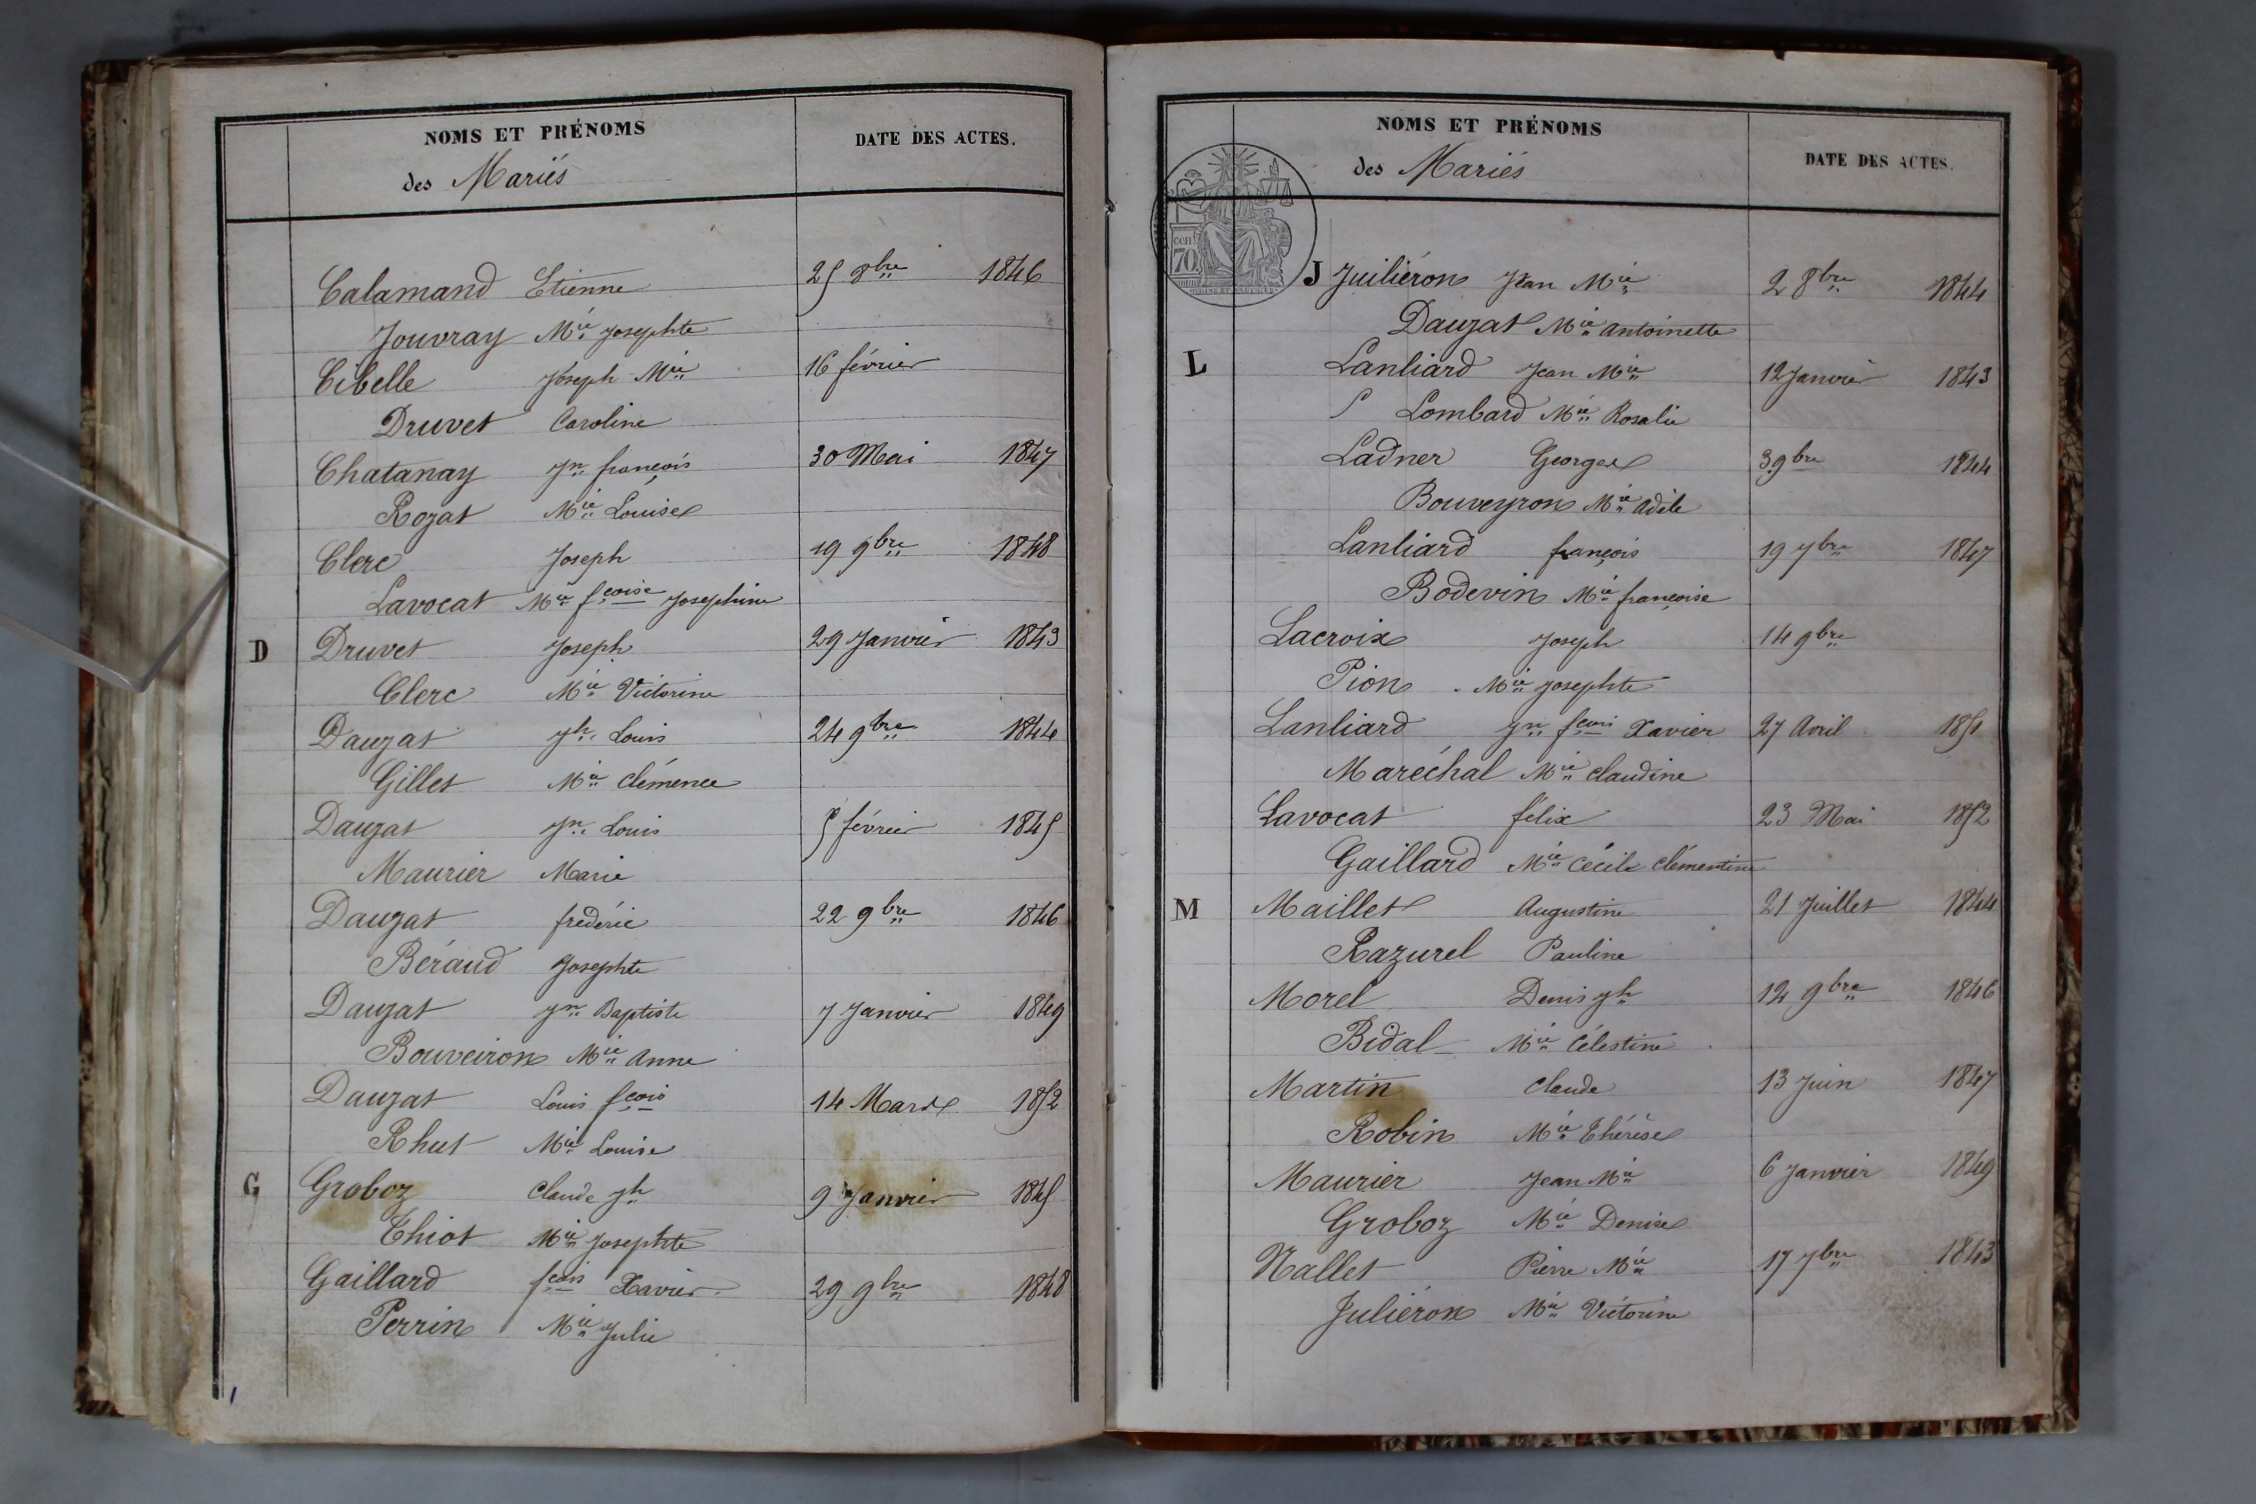 NOMS ET PRÉNOMS
DATE DES ACTES.
des Mariés
Calamand Etienne 25 8bre 1846
Jouvray Mie Josephte
Cibelle Joseph Mie 16 février
Druvet Caroline
Chatanay Jn françois 30 Mai 1847
Rozat Mie Louise
Clerc Joseph 19 9bre 1848
Lavocat Mie fcoise Josephine
D Druvet Joseph 29 Janvier 1843
Clerc Mie Victorine
Dauzat Jh Louis 24 9bre 1844
Gillet Mie Clémence
Dauzat Jn Louis 5 février 1845
Maurier Marie
Dauzat frédéric 22 9bre 1846
Béraud Josephte
Dauzat Jn Baptiste 7 Janvier 1849
Bouveiron Mie Anne
Dauzat Louis fcois 14 Mars 1852
Rhut Mie Louise
G Groboz Claude Jh 9 Janvier 1845
Thiot Mie Josephte
Gaillard fcois Xavier 29 9bre 1848
Perrin Mie Julie
NOMS ET PRÉNOMS
DATE DES ACTES.
des Mariés
cent
70
J Juiliéron Jean Mie 2 8bre 1844
Dauzat Mie Antoinette
L Lanliard Jean Mie 12 Janvier 1843
Lombard Mie Rosalie
Ladner Georges 3 9bre 1844
Bouveyron Mie Adèle
Lanliard françois 19 7bre 1847
Bodevin Mie françoise
Lacroix Joseph 14 9bre
Pion Mie Josephte
Lanliard Jn fcois Xavier 27 Avril 1851
Maréchal Mie Claudine
Lavocat félix 23 Mai 1852
Gaillard Mie Cécile Clémentine
M Maillet Augustin 21 Juillet 1844
Razurel Pauline
Morel Denis Jh 12 9bre 1846
Bidal Mie Célestine
Martin Claude 13 Juin 1847
Robin Mie Thérèse
Maurier Jean Mie 6 Janvier 1849
Groboz Mie Denise
Nallet Pierre Mie 17 7bre 1843
Juliéron Mie Victorine